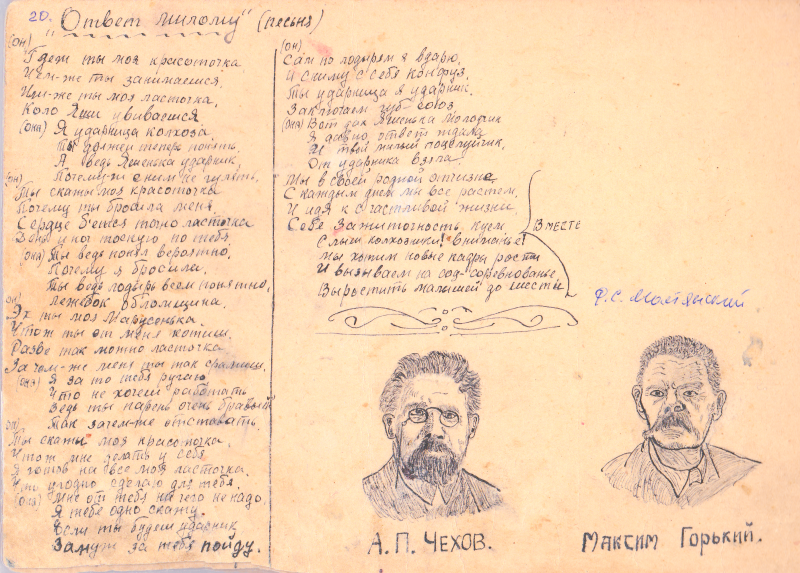 20. "Ответ милому" (песьня)
(он)
Где ж ты моя красоточка
Чем-же ты занимаешся,
Чем-же ты моя ласточка,
Коло Яши увиваешся
(она) Я ударница колхоза.
Ты должен теперь понять,
А ведь Яшенька ударник,
Почему-ж сним не гулять.
(он)
Ты скажы моя красоточка
Почему ты бросила меня.
Сердце бьется точно ласточка
и ноет тоскуя по тебя.
(она) Ты ведь понял вероятно,
Почему я бросила.
Ты ведь лодырь всем понятно,
Лежебок обломщина.
(он)
Эх ты моя Марусенька.
Чтож ты от меня хотиш.
Разве так можно ласточка
За чем-же меня ты так срамиш.
(она) Я за то тебя ругаю
Что не хочеш работать
Ведь ты парень очень бравый
Так зачем-же отставать.
(он)
Ты скажы моя красоточка,
Чтож мне делать у себя
Я готов на все моя ласточка.
Что угодно сделаю для тебя.
(она) Мне от тебя ничего не надо,
Я тебе одно скажу.
Если ты будеш ударник
Замуж за тебя пойду.
(он).
Сам по лодырям я вдарю,
И сниму с себя конфуз,
Ты ударница я ударник,
Заключаем мы союз
(она) Вот так Яшенька молодчик
Я давно ответ ждала
И твой милый поцелуйчик,
От ударника взяла.
Мы в своей родной отчизне
С каждым днем мы все растем,
И идя к счастливой жизни
Себе зажиточность куем
Слыш колхозники! Вниманье!
Мы хотим новые кадры рости
И вызываем на соц-соревнованье,
Вырьстить малышей до шести
Вместе
Ф.С. Мостянский
А.П. Чехов.
Максим Горький.